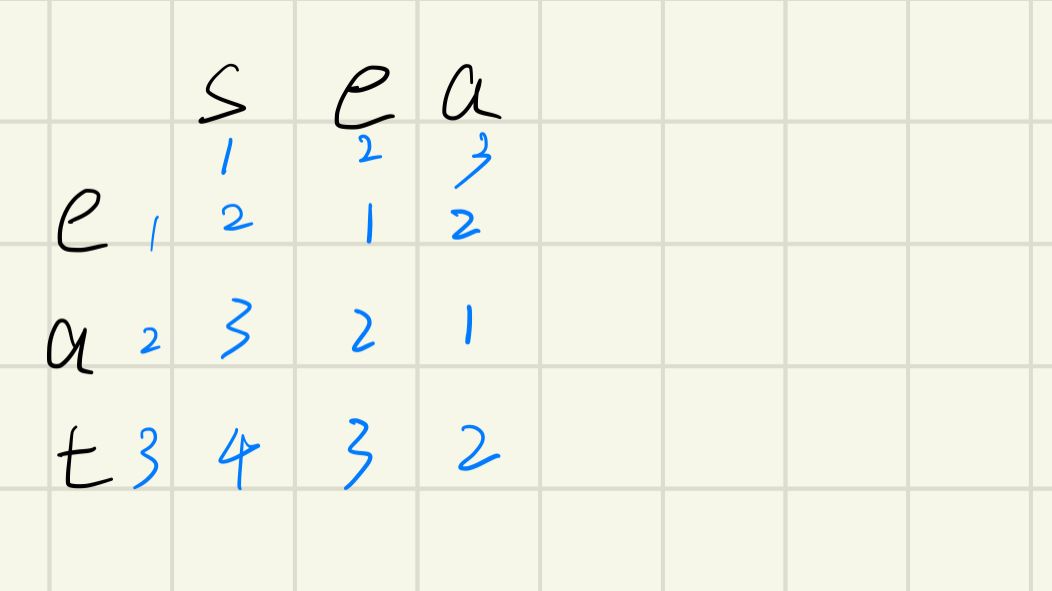 s e a
1 2 3
e 1 2 1 2
a 2 3 2 1
t 3 4 3 2